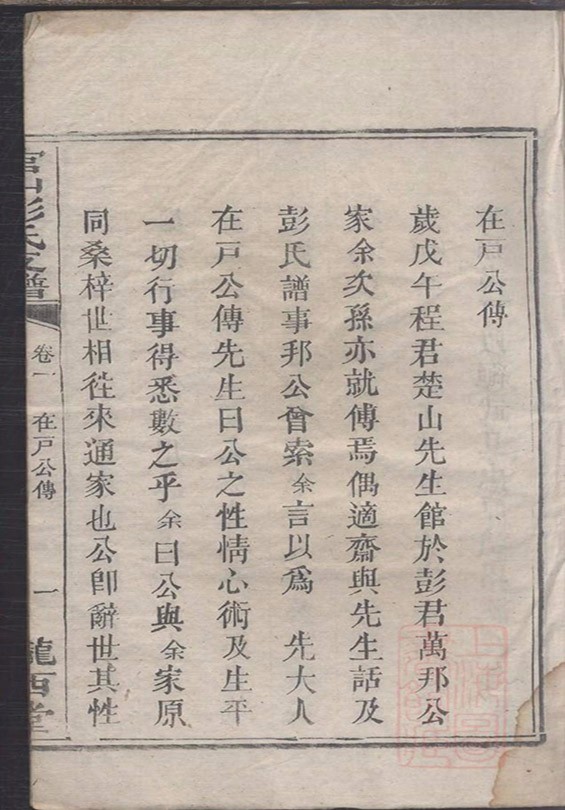 在戸公傳
歲戊午程君楚山先生館於彭君萬邦公
家余次孫亦就傅焉偶適齋與先生話及
彭氏譜事邦公曾索余言以爲　先大人
在戸公傳先生曰公之性情心術及生平
一切行事得悉數之乎余曰公與余家原
同桑梓世相徃來通家也公卽辭世其性
官山彭氏支譜
卷一
在戸公傳
一
隴西堂